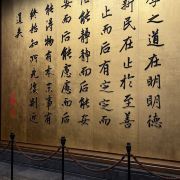 學之道在明明德
新民在止於至善
止而后有定定而
后能靜靜而后能安
安而后能慮慮而后
能得物有本末事有
終始知所先後則近
道矣